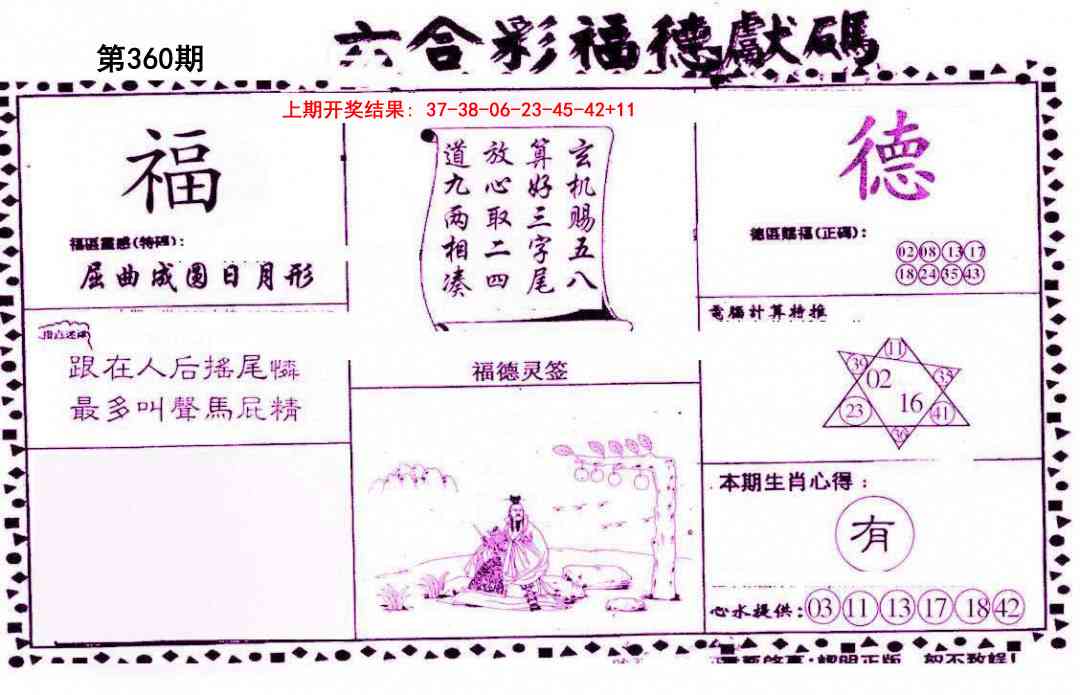 六合彩福德獻碼
第360期
上期开奖结果: 37-38-06-23-45-42+11
福
福區靈感(特碼):
屈曲成圓日月形
玄机赐五八
算好三字尾
放心取二四
道九两相凑
德
德區賜福(正碼):
02 08 13 17
18 24 35 43
跟在人后摇尾憐
最多叫聲馬屁精
福德灵签
電腦計算特推
11
39 02 35
23 16 41
36
本期生肖心得:
有
心水提供: 03 11 13 17 18 42